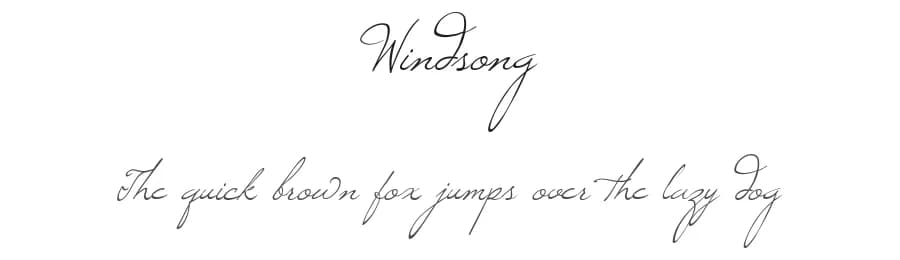 Windsong
The quick brown fox jumps over the lazy dog